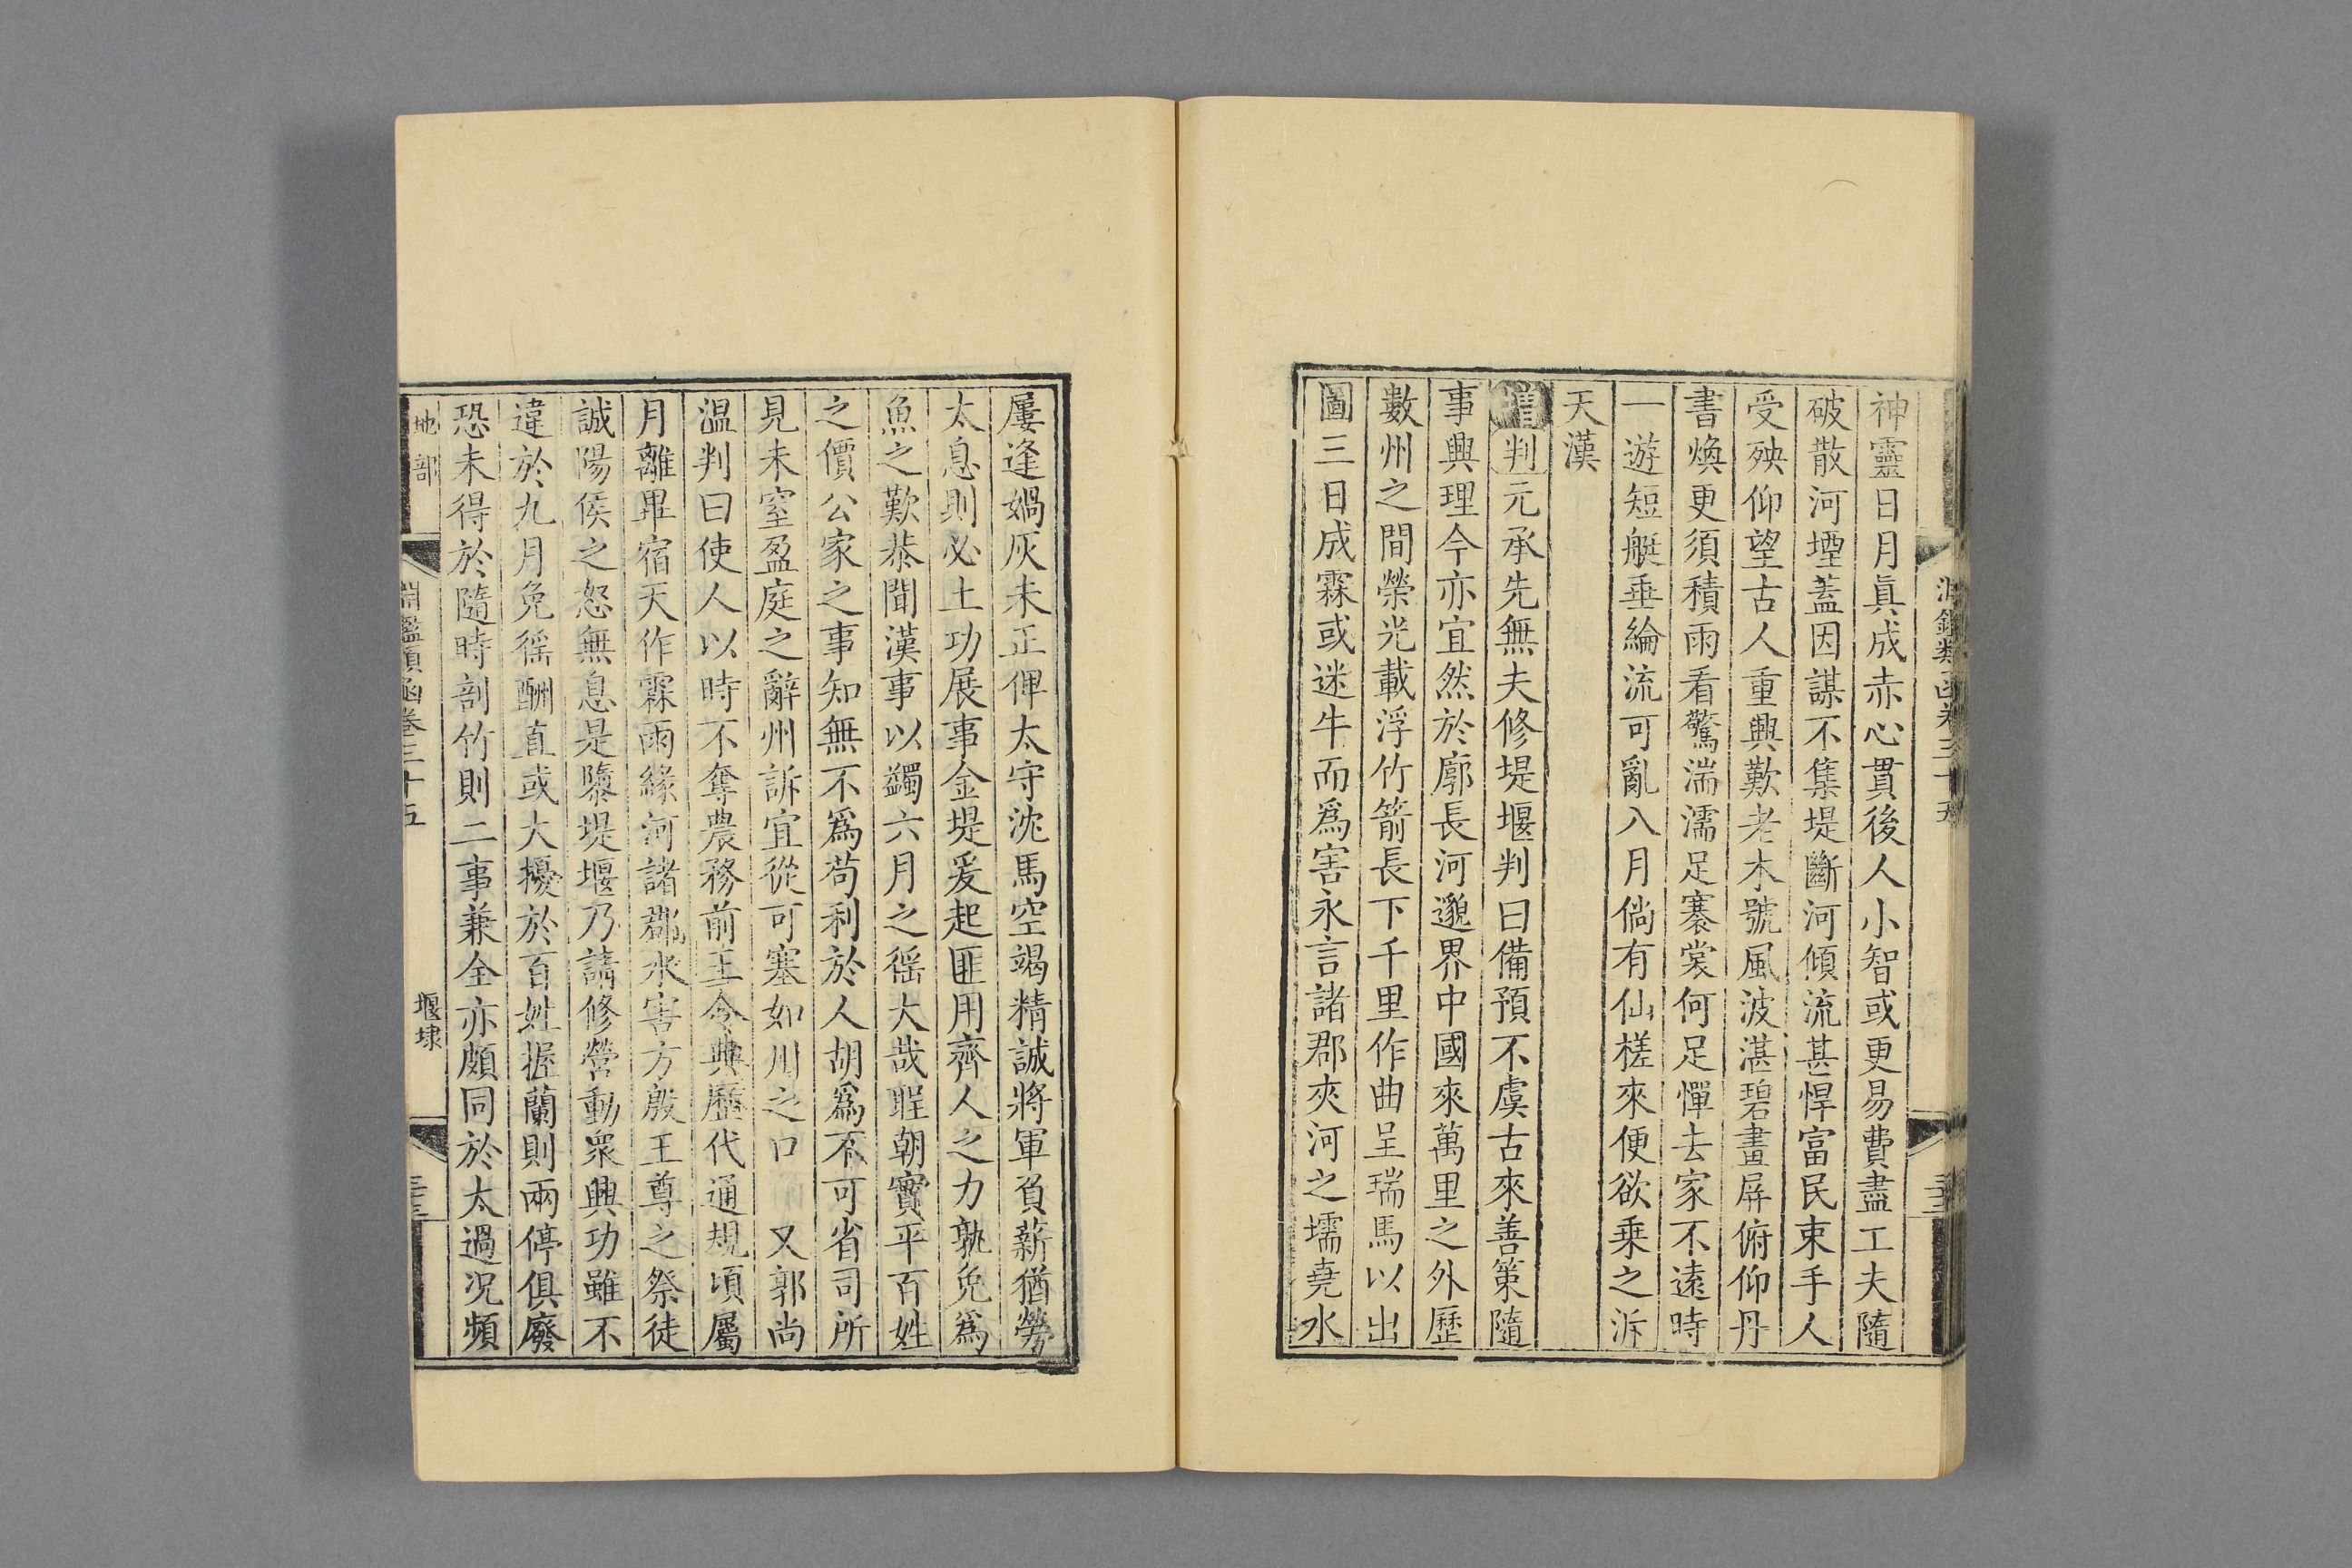 淵鑑類函卷三十五
神靈日月眞成赤心貫後人小智或更易費盡工夫隨
破散河堙蓋因謀不集堤斷河傾流甚悍富民束手人
受殃仰望古人重興歎老木號風波湛碧畫屏俯仰丹
書煥更須積雨看驚湍濡足褰裳何足憚去家不遠時
一遊短艇垂綸流可亂八月倘有仙槎來便欲乗之泝
天漢
增判元承先無夫修堤堰判曰備預不虞古來善策隨
事興理今亦宜然於廓長河邈界中國來萬里之外歷
數州之間榮光載浮竹箭長下千里作曲呈瑞馬以出
圖三日成霖或迷牛而爲害永言諸郡夾河之壖堯水
屢逢媧灰未正俾太守沈馬空竭精誠將軍負薪猶勞
太息則必土功展事金堤爰起匪用齊人之力孰免爲
魚之歎恭聞漢事以蠲六月之徭大哉聖朝實平百姓
之價公家之事知無不爲苟利於人胡爲不可省司所
見未窒盈庭之辭州訴宜從可塞如川之口 又郭尚
溫判曰使人以時不奪農務前王令典歷代通規頃屬
月離畢宿天作霖雨緣河諸郡水害方殷王尊之祭徒
誠陽侯之怒無息是隳堤堰乃請修營動衆興功雖不
違於九月免徭酬直或大擾於百姓握蘭則兩停俱廢
恐未得於隨時剖竹則二事兼全亦頗同於太過况頻
地部 淵鑑類函卷三十五 堰埭